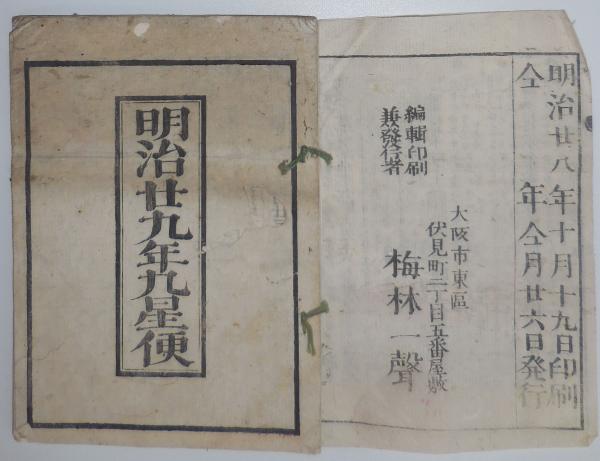 明治廿九年九星便
明治廿八年十月十九日印刷
仝年仝月廿六日発行
編輯印刷
兼發行者
大阪市東區
伏見町二丁目五番屋敷
梅林一聲